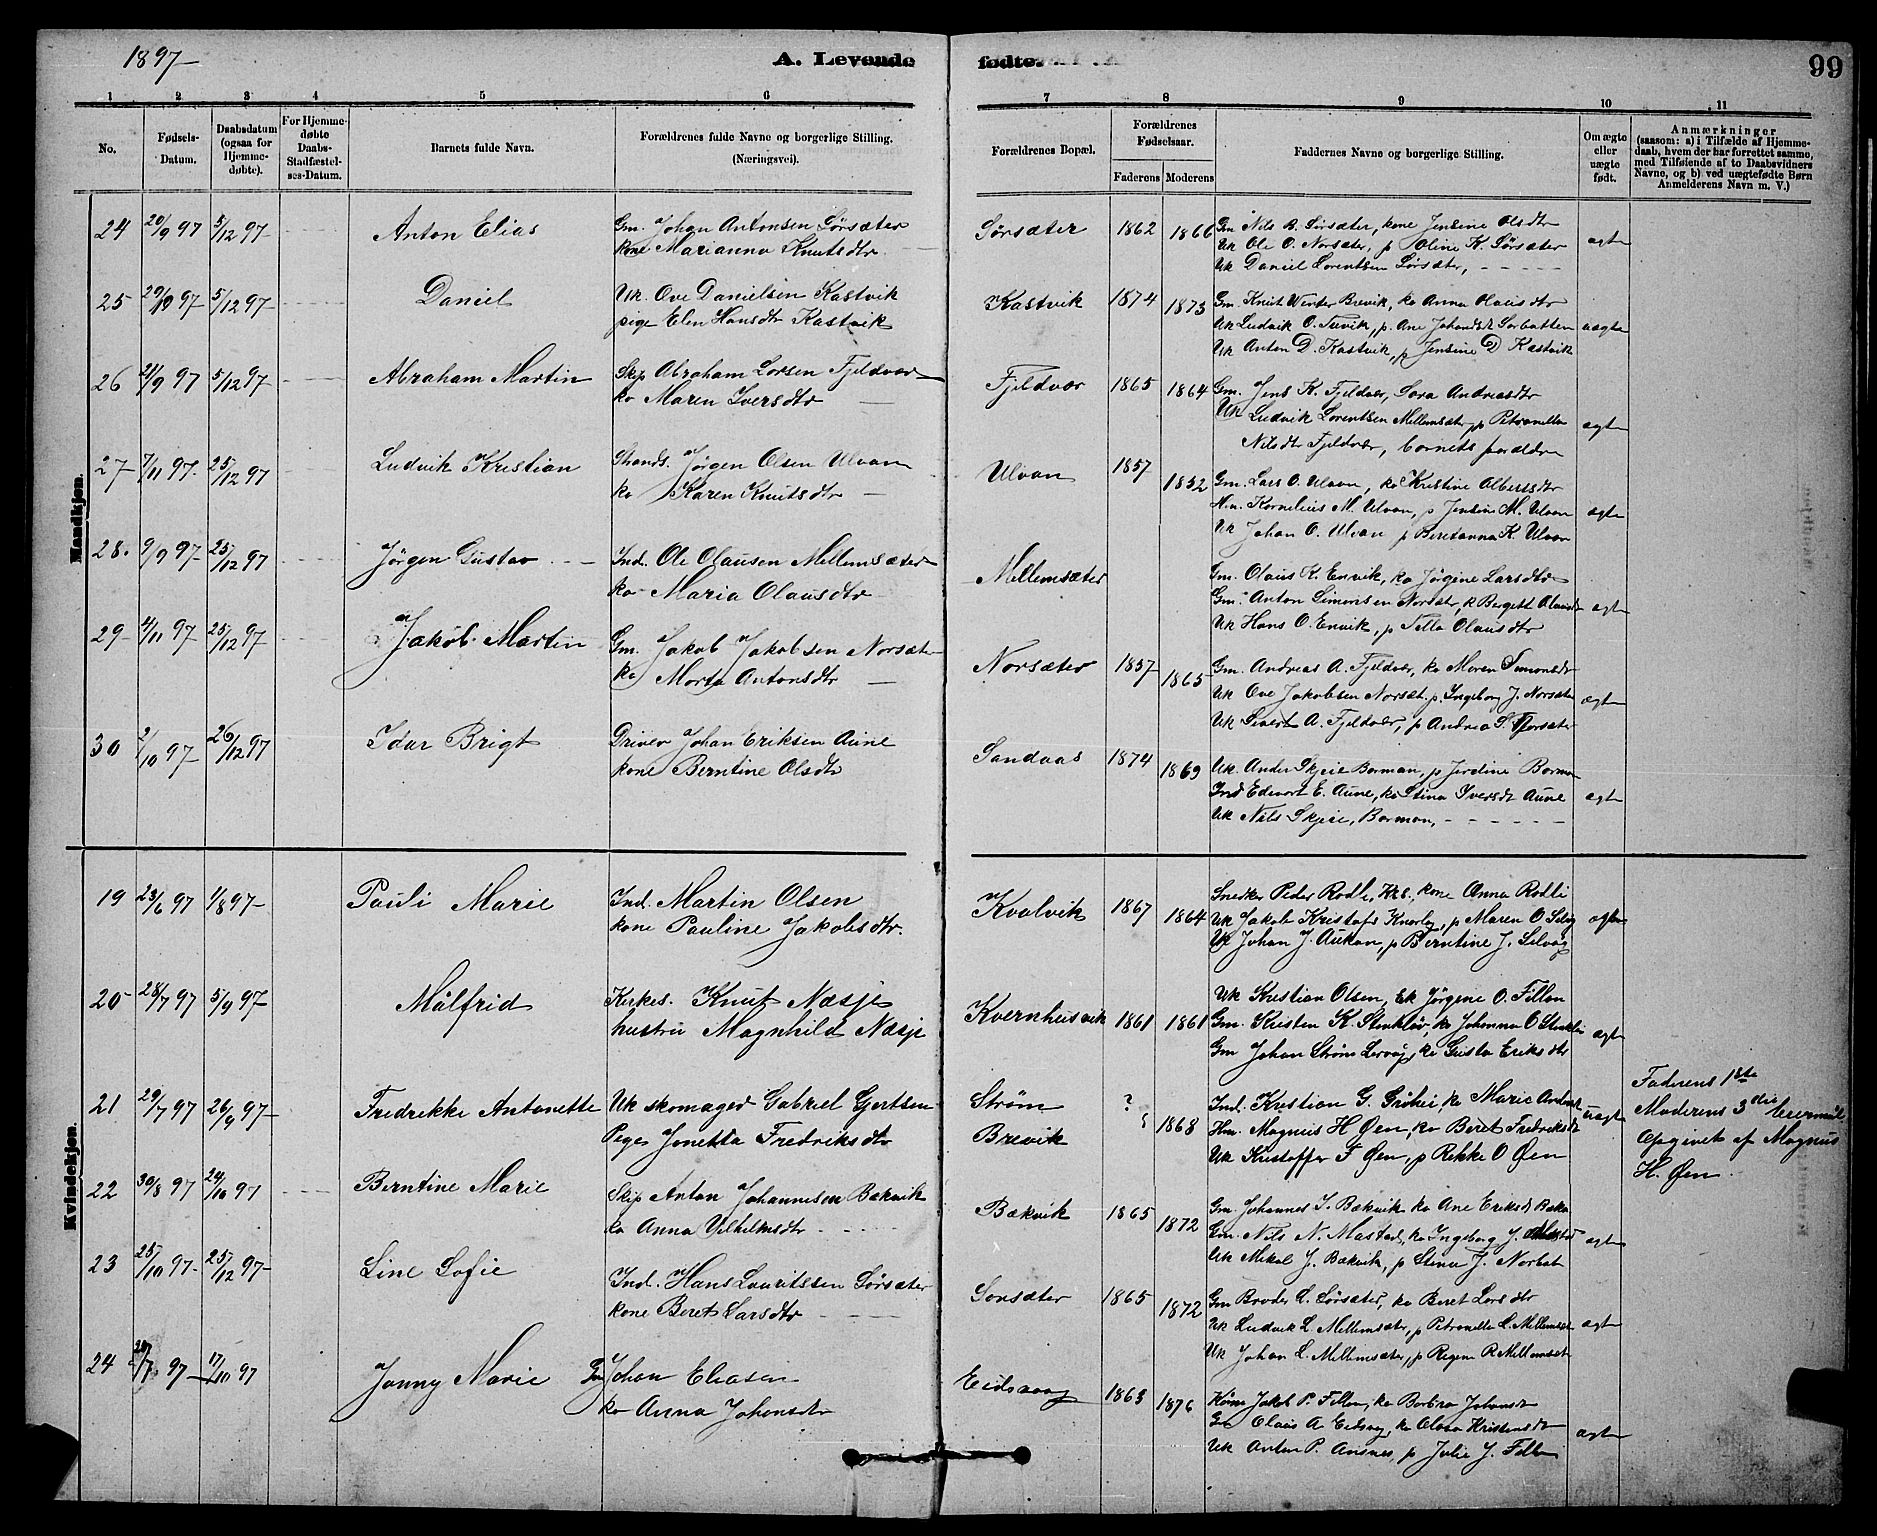 1897
A. Levende fødte.
99
1 2 3 4 5 6 7 8 9 10 11
No.
Fødsels-Datum.
Daabsdatum (ogsaa for Hjemme-døbte).
For Hjemme-døbte Daabs-Stadfæstel-ses-Datum.
Barnets fulde Navn.
Forældrenes fulde Navne og borgerlige Stilling. (Næringsvei).
Forældrenes Bopæl.
Forældrenes Fødselsaar.
Faderens Moderens
Faddernes Navne og borgerlige Stilling.
Om ægte eller uægte født.
Anmærkninger
(saasom: a) i Tilfælde af Hjemme-
daab, hvem der har forrettet samme,
med Tilføiende af to Daabsvidners
Navne, og b) ved uægtefødte Børn
Anmelderens Navn m. V.)
Mandkjøn.
24 20/9 97 5/12 97 Anton Elias Gm. Johan Antonsen Sørsæter Sørsæter 1862 1866 Gm Nils B. Sørsæter, kone Jensine Olsdtr
kone Marianna Knutsdtr. Uk Ole O. Norsæter, p Oline K. Sørsæter ægte
Uk Daniel Lorentsen Sørsæter,
25 5/12 97 Daniel Uk. Ove Danielsen Kastvik Kastvik 1874 1873 Gm. Knut Winter Brevik, ko Anna Olausdtr
pige Elen Hansdtr Kastvik Uk Ludvik O. p. Ane uægte
Uk Anton D. Kastvik, p Jensine D Kastvik
26 21/9 97 5/12 97 Abraham Martin Skip Abraham Larsen Fjeldvær Fjeldvær 1865 1864 Gm. Jens K. Fjeldvær, Sara Andreasdtr
ko Maren Iversdtr Uk Ludvik Lorentsen Mellemsæter, p Petronella ægte
Nilsdtr Fjeldvær, barnets forældre
27 7/11 97. 25/12 97 Ludvik Kristian Strands. Jørgen Olsen Ulvan Ulvan 1857 1852 Gm. Lars O. Ulvan, ko Kristine Albertsdtr
ko Karen Knutsdtr Kornelius M. Ulvan, p Jensine M. Ulvan ægte
Uk Johan O. Ulvan p Beretanna K Ulvan
28. 9/9 97 25/12 97 Jørgen Gustav Ind. Ole Olausen Mellemsæter Mellemsæter Gm. Olaus K. Envik, ko Jørgine Larsdtr
ko Maria Olausdtr Gm. Anton Simonsen Norsæter, k Bergett ægte
Uk Hans O. Envik, p Olausdtr
29 4/11 97 25/12 97 Jakob Martin Gm. Jakob Jakobsen Norsæter Norsæter 1857 1865 Gm. Andreas A. Fjeldvær, ko Maren Simonsdtr
ko Marta Antonsdtr Uk Ove Jakobsen Norsæt. p. Ingeborg J. Norsæter ægte
Uk Sivert A. Fjeldvær, p Andrea S. Norsæter
30 2/10 97 26/12 97 Idar Brigt Driver Johan Eriksen Aune Sandaas 1874 1869 Uk. Ander Skjeie Borman, p Jordine Borman
kone Berntine Olsdtr Ind Edvart E. Aune, ko Stina Iversdt Aune ægte
Uk Nils Skjeie, Borman,
Kvindekjøn.
19 23/6 97 1/8 97 Pauli Marie Ind. Martin Olsen Kvalvik 1867 1864 Snedker Peder Rodli, Krs., kone Anna Rodli
kone Pauline Jakobsdtr. Uk Jakob Kristofs p Maren O ægte
Uk Johan J. Aukan, p Berntine J. Selvåg
20 28/7 97 5/9 97 Målfrid Kirkes. Knut Næsje Kvernhusvik 1861 1861 Uk Kristian Olsen, Ek Jørgine O. Fillan
hustru Magnhild Næsje Gm. Kristen K. Stenkløv, ko Johanna O ægte
Gm Johan Strøm ko Gusta Eriksdtr
21 29/7 97 26/9 97 Fredrikke Antonette Uk skomager Gabriel Gjertsen Strøm ? Ind. Kristian G. ko Marie uægte
Pige Jonetta Fredriksdtr Brevik 1868 Hm. Magnus H Øen, ko Beret Fredriksdt
Uk Kristoffer F Øen, p Rekke O Øen
Faderens 1ste
Moderens 3die leiermål
Opgivet af Magnus
H. Øen.
22 30/8 97 24/10 97 Berntine Marie Skip Anton Johannesen Bækvik Bækvik 1865 1872 Gm. Johannes I. Bækvik ko Ane Eriksd
ko Anna Vilhelmsdtr Gm. Nils N. Mastad, ko Ingeborg J. ægte
Uk Mikal J. Bækvik, p Stina J. Norbot
23 25/10 97 25/12 97 Line Sofie Ind. Hans Lauritssen Sørsæter Sorsæter 1865 1872 Gm Broder L. Sørsæter, ko Beret Larsdtr
kone Beret Larsdtr Uk Ludvik L. Mellemsæter, p Petronella L. Mellemsæt ægte
Uk Johan L. Mellemsæter, p Regine R Mellemsæt
24 97 17/10 97 Jonny Marie Gm Johan Eliasen Eidsvaag 1863 1876 Jakob P. Fillan, ko Berbra Johansdt
ko Anna Johansdtr Gm Olaus A Eidsvåg, ko Kristensdtr ægte
Uk Anton P. Ansnes, p Julie J. Fillan